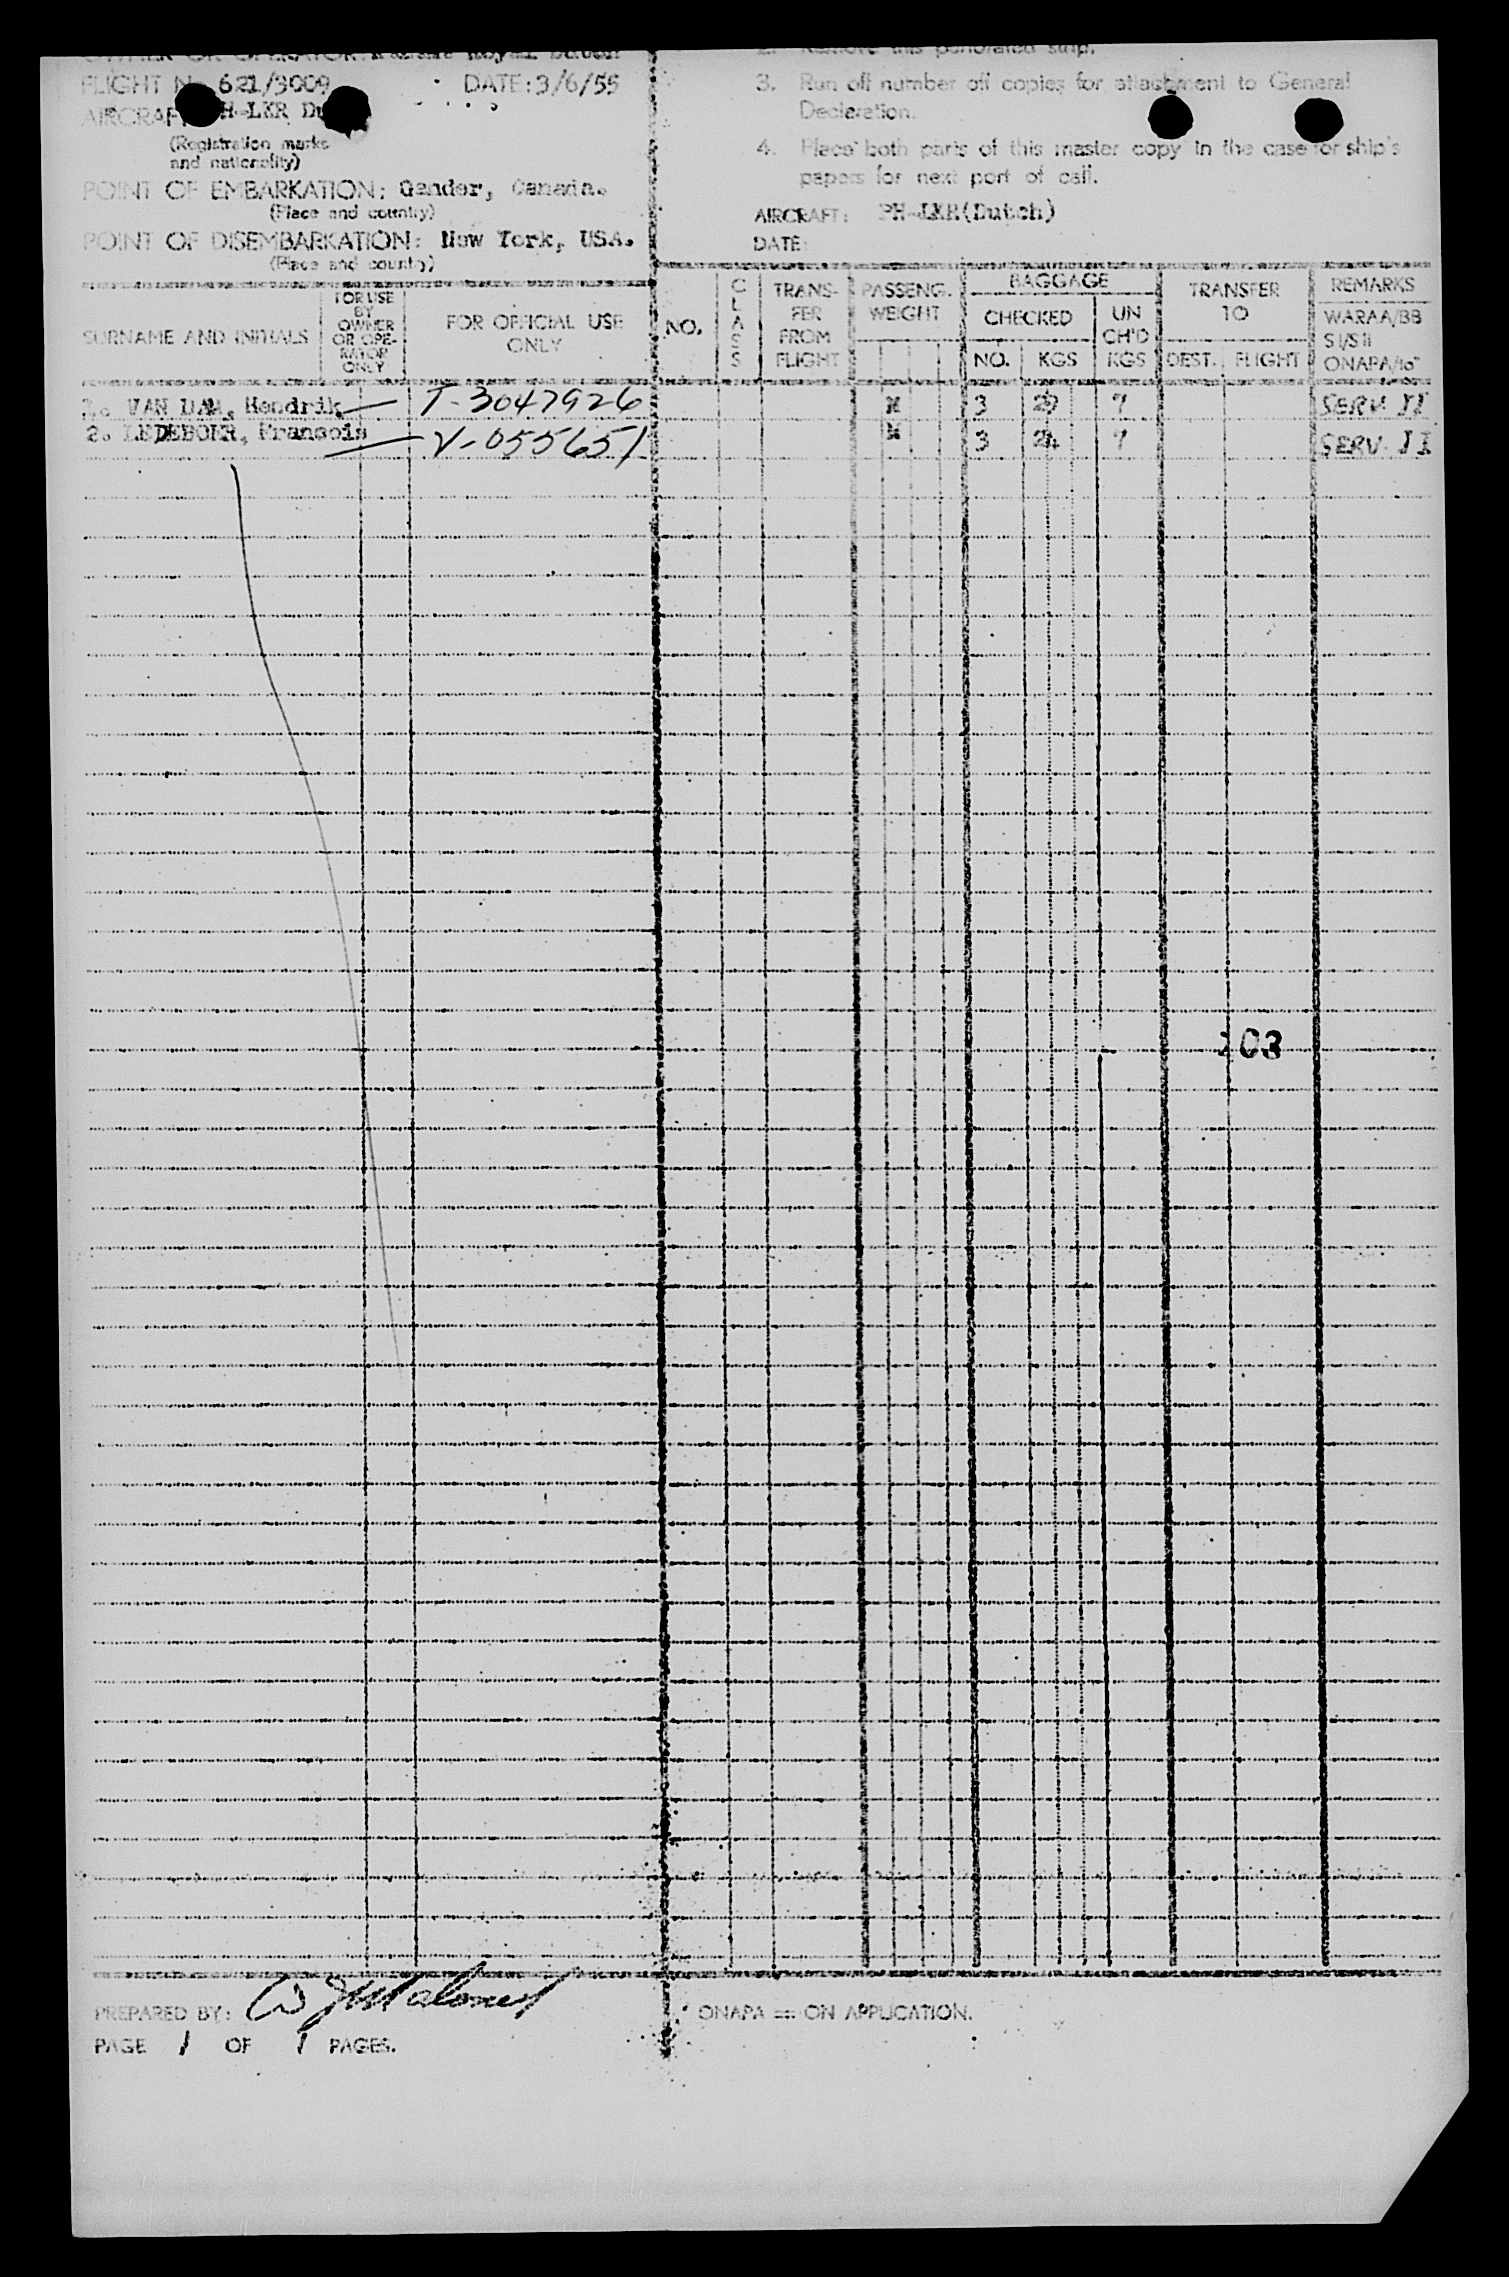 OWNER OR OPERATOR: Royal Dutch
FLIGHT N 621/3009 DATE: 3/6/55
AIRCRAF H-LKR Du
(Registration marks
and nationality)
POINT OF EMBARKATION: Gander, Canada.
(Place and country)
POINT OF DISEMBARKATION: New York, USA.
(Place and country)
2. Remove this perforated strip.
3. Run off number off copies for attachment to General
Declaration.
4. Place both parts of this master copy in the case for ship's
papers for next port of call.
AIRCRAFT: PH-LKR(Dutch)
DATE:
SURNAME AND INITIALS
FOR USE
BY
OWNER
OR OPE-
RATOR
ONLY
FOR OFFICIAL USE
ONLY
NO.
CLASS
TRANS-
FER
FROM
FLIGHT
PASSENG.
WEIGHT
BAGGAGE
CHECKED
NO. KGS
UN
CH'D
KGS
TRANSFER
TO
DEST. FLIGHT
REMARKS
WARAA/BB
SI/SII
ONAPA/to
1. VAN DAM, Hendrik T-3047926 3 7 SERV II
2. LEDEBOER, Francois V-055651 3 7 SERV. II
103
PREPARED BY:
PAGE 1 OF 1 PAGES.
ONAPA = ON APPLICATION.